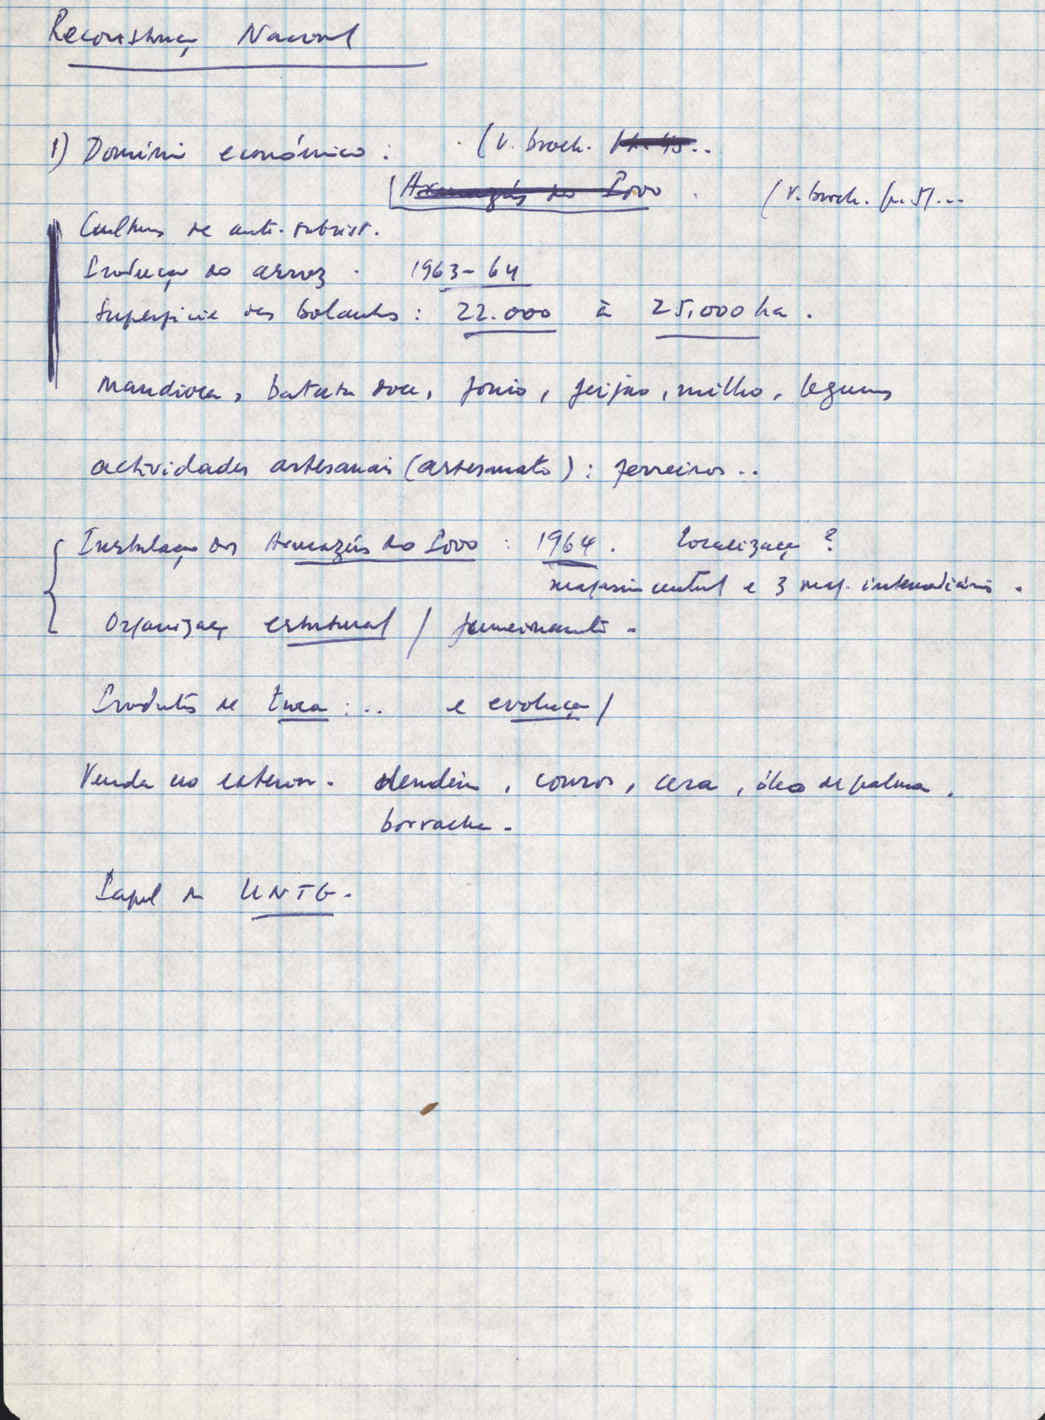 Reconstrução Nacional
1) Domínio económico : (V. broch.
Armazéns do Povo . (V. broch. p. 51...
Culturas de auto-subsist.
Produção do arroz . 1963-64
Superfície das bolanhas : 22.000 à 25.000 ha .
Mandioca, batata doce, fonio, feijão, milho, legumes
actividades artesanais (artesanato) : ferreiros ..
Instalação dos Armazéns do Povo : 1964 . Localização ?
magasin central e 3 mag. intermediários .
Organização estrutural / funcionamento .
Produtos de troca : .. e evolução /
Venda no exterior . dendém, couros, cera, óleo de palma .
borracha .
Papel da UNTG .